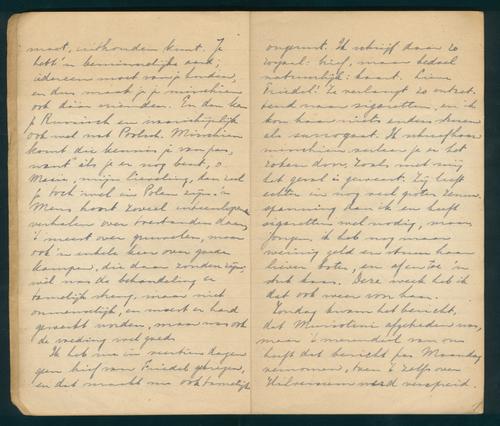 moet, uithouden kunt. Je
hebt 'n beminnelijke aard;
iedereen moet van je houden,
en dus maak je je misschien
ook daar vrienden. En dan ken
je Russisch en waarschijnlijk
ook wel wat Poolsch. Misschien
komt die kennis je van pas,
want als je er nog bent, o
Mesie, mijn lieveling, dan zal
je toch wel in Polen zijn. 'n
Mens hoort zoveel uiteenlopende
verhalen over toestanden daar,
't meest over gruwelen, maar
ook 'n enkele keer over goede
kampen, die daar zouden zijn,
wél van de behandeling er
tamelijk streng, maar niet
onmenselijk, en moest er hard
gewerkt worden, maar was ook
de voeding wel goed.
Ik heb nu in veertien dagen
geen brief van Friedel gekregen,
en dat maakt me ook tamelijk
ongerust. Ik schrijf daar zo
vaak: brief, maar bedoel
natuurlijk: kaart. Lieve
Friedel! Ze verlangt zo ontzet-
tend naar sigaretten, en ik
kon haar niets anders sturen
als surrogaat. Ik schreef haar
misschien verlies je er het
roken door, zoals met mij
het geval is geweest. Zij leeft
echter in nog veel groter zenuw-
spanning dan ik en heeft
sigaretten wel nodig, maar
jongen, ik heb nog maar
weinig geld en stuur haar
liever boter, en af en toe 'n
stuk kaas. Deze week heb ik
dat ook weer voor haar.
Zondag kwam het bericht,
dat Mussolini afgetreden was,
maar 't merendeel van ons
heeft dat bericht pas Maandag
vernomen, toen 't zelfs over
Hilversum werd verspreid.